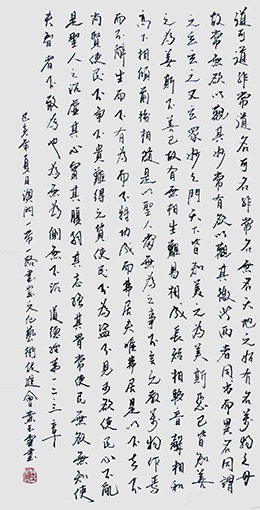 道可道非常道名可名非常名無名天地之始有名萬物之母
故常無欲以觀其妙常有欲以觀其徼此两者同出而異名同謂
之玄玄之又玄眾妙之門天下皆知美之為美斯惡已皆知善
之為善斯不善已故有無相生難易相成長短相較音聲相和
高下相傾前後相隨是以聖人處無為之事不言之教萬物作焉
而不辭生而不有為而不恃功成而弗居夫唯弗居是以不去不
尚賢使民不爭不貴難得之貨使民不為盜不見可欲使民心不亂
是聖人之治虛其心實其腹弱其志強其骨常使民無欲無知使
夫智者不敢為也為無為則無不治 道德經第一二三章
己亥年夏月澳門一帶一路書畫文化藝術促進會黃玉書